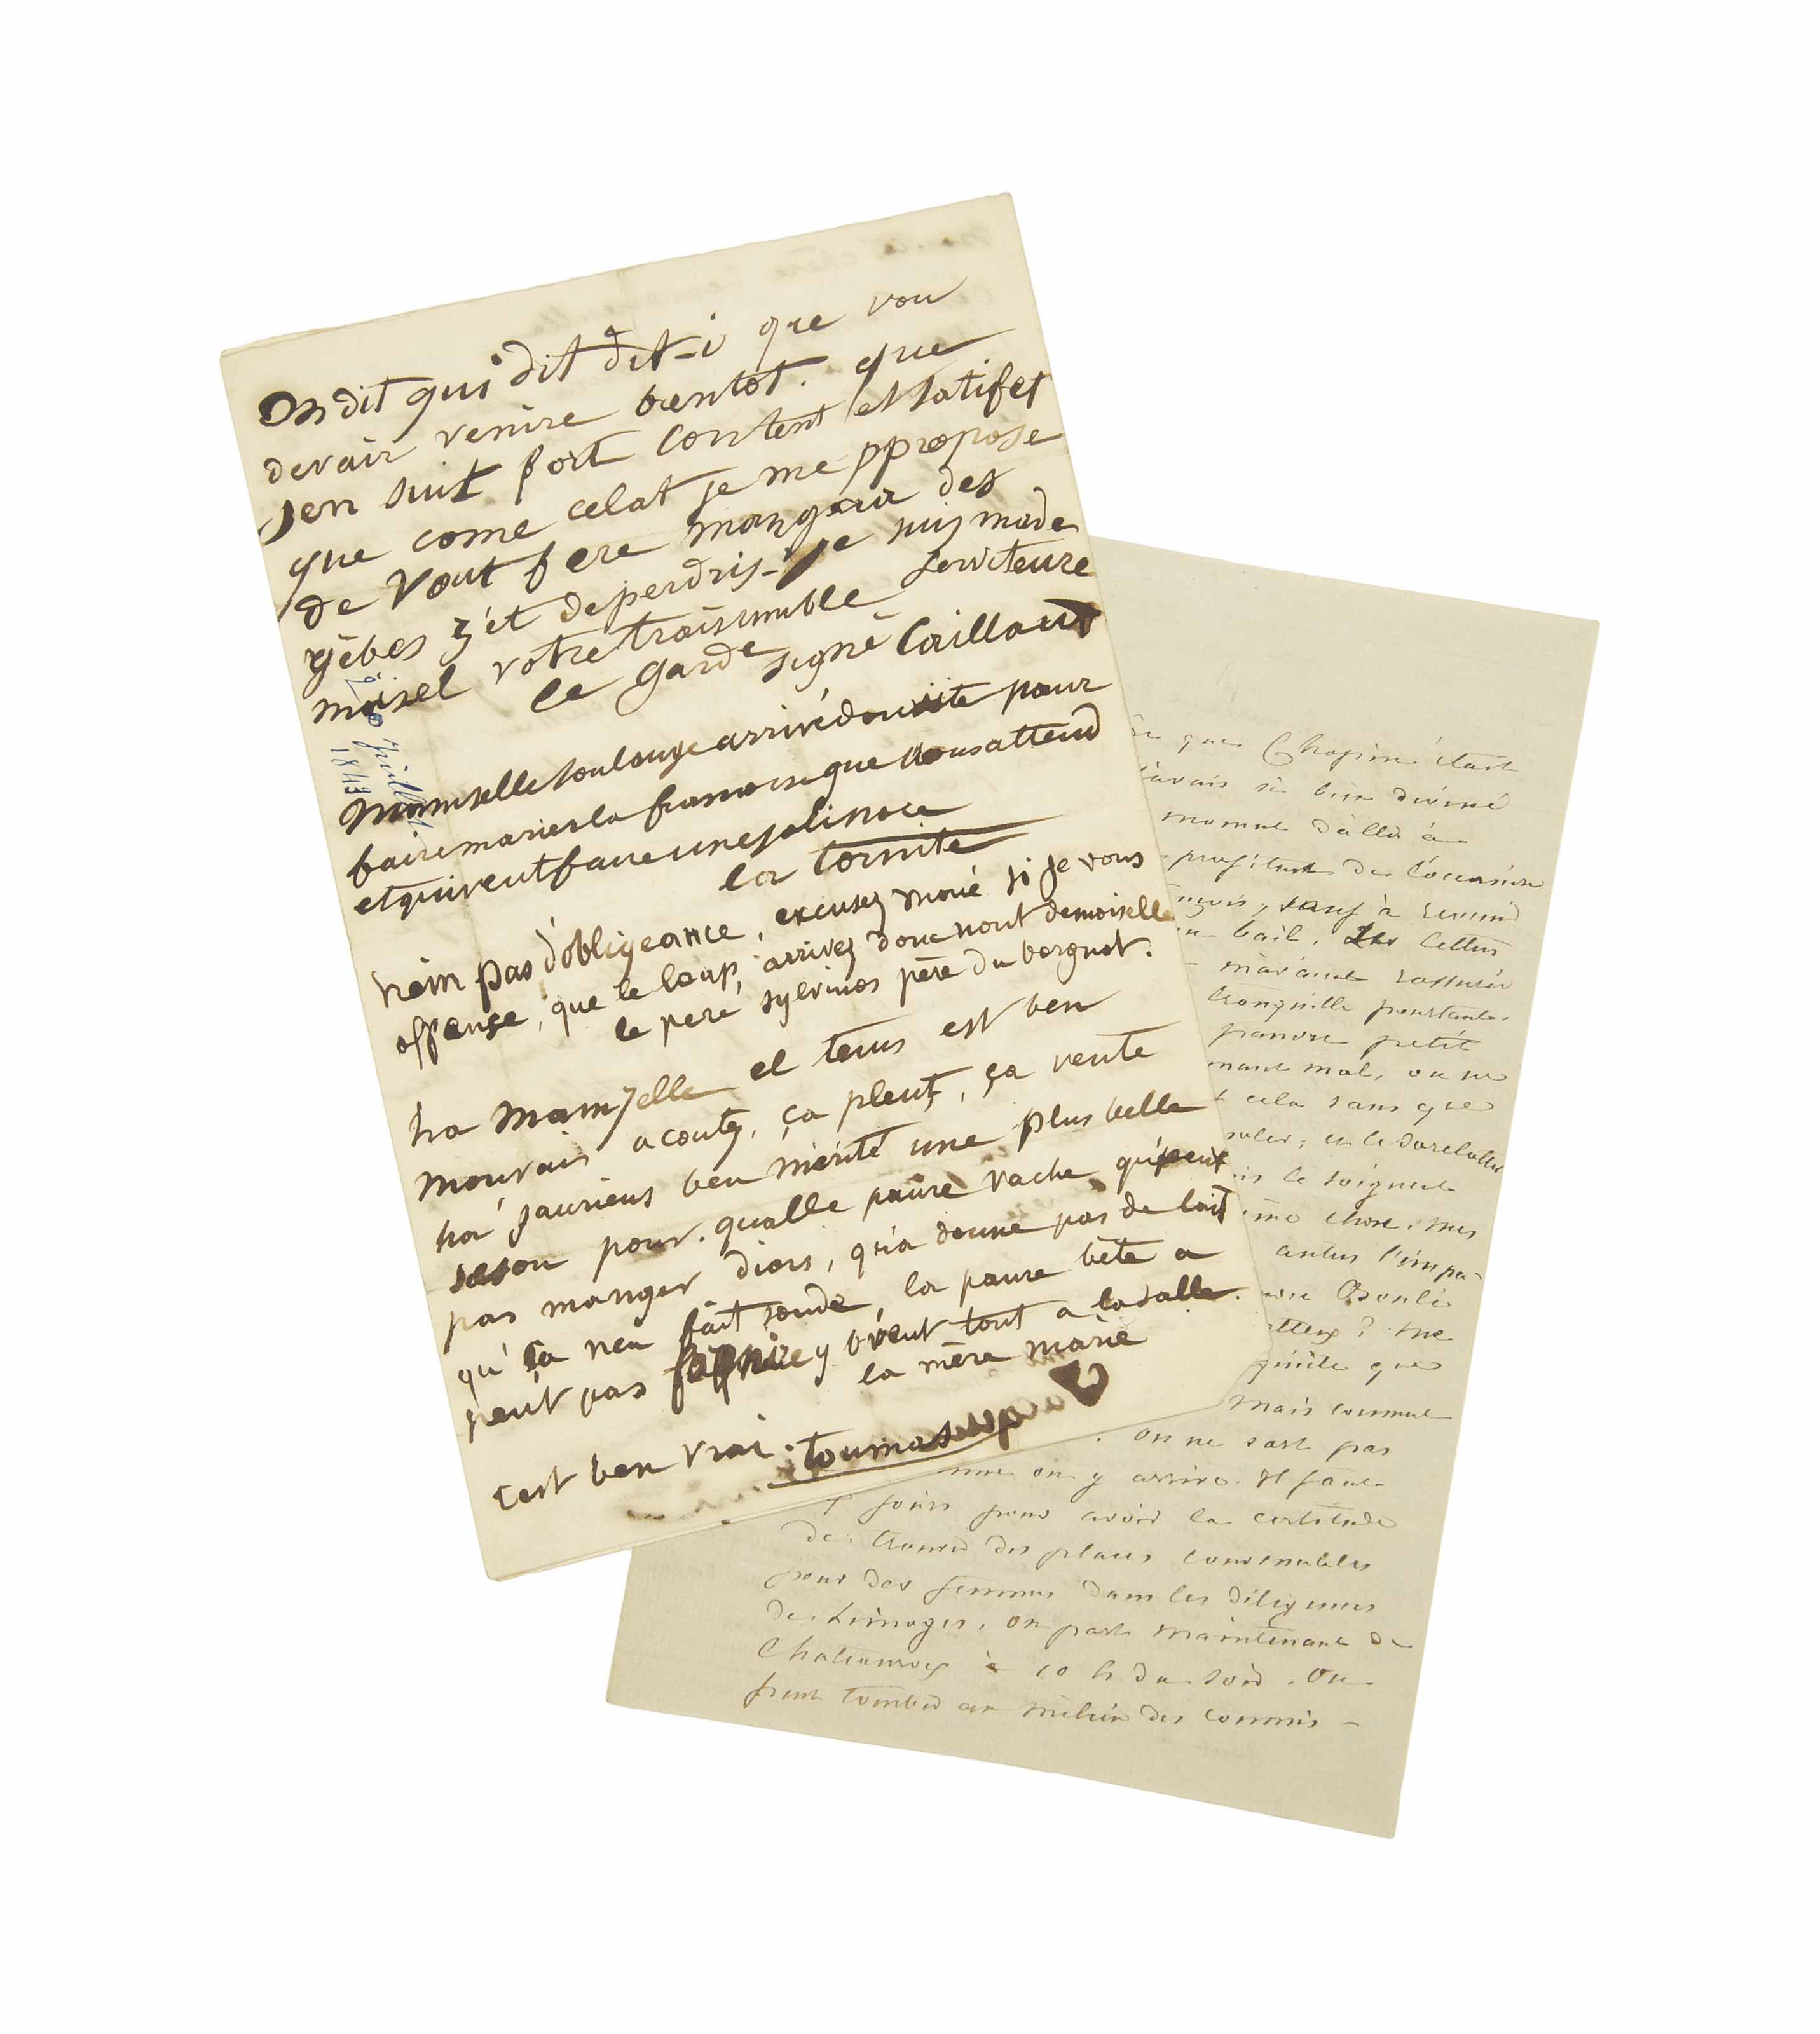 on dit qui dit dit-i que vou
devair venire bentot. que
jen suit fort content et satifet
que come celat je me ppropose
de vout fere mangair des
gèbes z'ét deperdris- je suis made
moisel votre traisumble serviteure
le garde signé Caillaut
20 juillet
1843
mamselle soulange arrivé dou vite pour
faire marier la francoise que vous attend
et qui veut faire une joli noce
la tornite
nein pas d'obligeance, excusez moué si je vous
offense, que le loup, arrivez donc nout demoiselle
le pere sylvinos père du borgnot.
ha mamzelle el tems est ben
mouvais acoutez, ça pleut, ça vente
ha j'auriens ben mérité une plus belle
seson pour. qualle paure vache qu'peut
pas manger diors, qu'a donne pas de lait
qu' ça neu fait soude, la paure bète a
peut pas fornire y brent tout a la salle.
la mère marie
cest ben vrai. toumas
que Chopin était
j'avais si bien deviné
moment d'aller à
profitant de l'occasion
sauf à revenir
bail. Les lettres
m'avaient rassurée
tranquille pourtant.
pauvre petit
mal, on ne
cela sans que
et le dorelotter
le soignent
chose. mes
autres l'impa-
me
que
mais comment
. on ne sait pas
on y arrive. Il faut
jours pour avoir la certitude
de trouver des places convenables
pour des femmes dans les diligences
de Limoges. on part maintenant de
Chateauroux à 10 h du soir. On
peut tomber au milieu des commis-